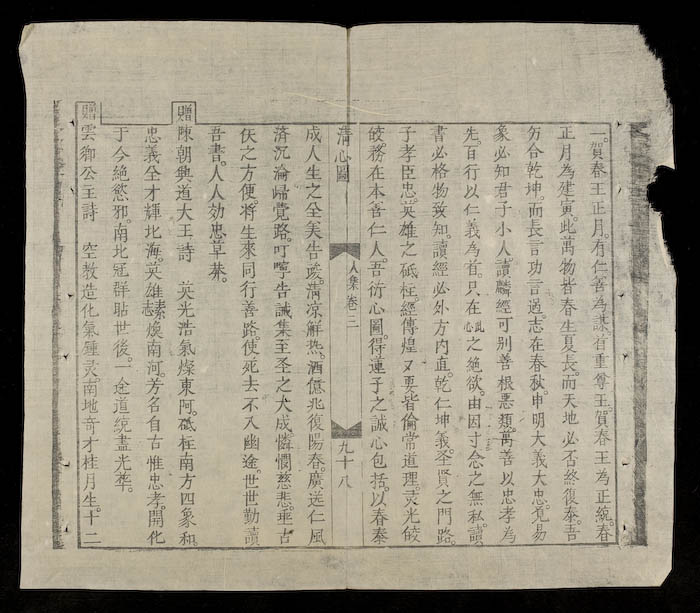 一。賀春王正月。有仁善為謀。首重尊王。賀春王為正統。春
正月為建寅。此萬物皆春生夏長。而天地必否終復泰。吾
勿合乾坤。而長言功言過。志在春秋申明大義大忠。見易
象必知君子小人。讀麟經可別善根惡類。萬善以忠孝為
先。百行以仁義為首。只在之絕欲。由因寸念之無私。讀
書必格物致知。讀經必外方內直。乾仁坤義。圣賢之門路。
子孝臣忠。英雄之砥柱。經傳煌又要皆倫常道理。灵光皎
皎務在本善仁人。吾衍心圖。得蓮子之誠心包括。以春秦
清心圖
人集卷三
九十八
成人生之全美告蒙。清凉解热。洒億兆復陽春。廣送仁風
済沉淪歸覺路。叮嚀告誡集至圣之大成。憐憫慈悲。垂古
仸之方便。將生來同行善路。使死去不入幽途。世世勤讀
吾書。人人効忠草莽。
贈陳朝興道大王詩 英光浩氣燦東阿。砥柱南方四象和
忠義全才輝北海。英雄素志煥南河。芳名自古惟忠孝。開化
于今絶慾邪。南北冠群貽世後。一途道統盡光華。
贈雲鄉公主詩 空教造化氣鍾灵。南地奇才桂月生。十二